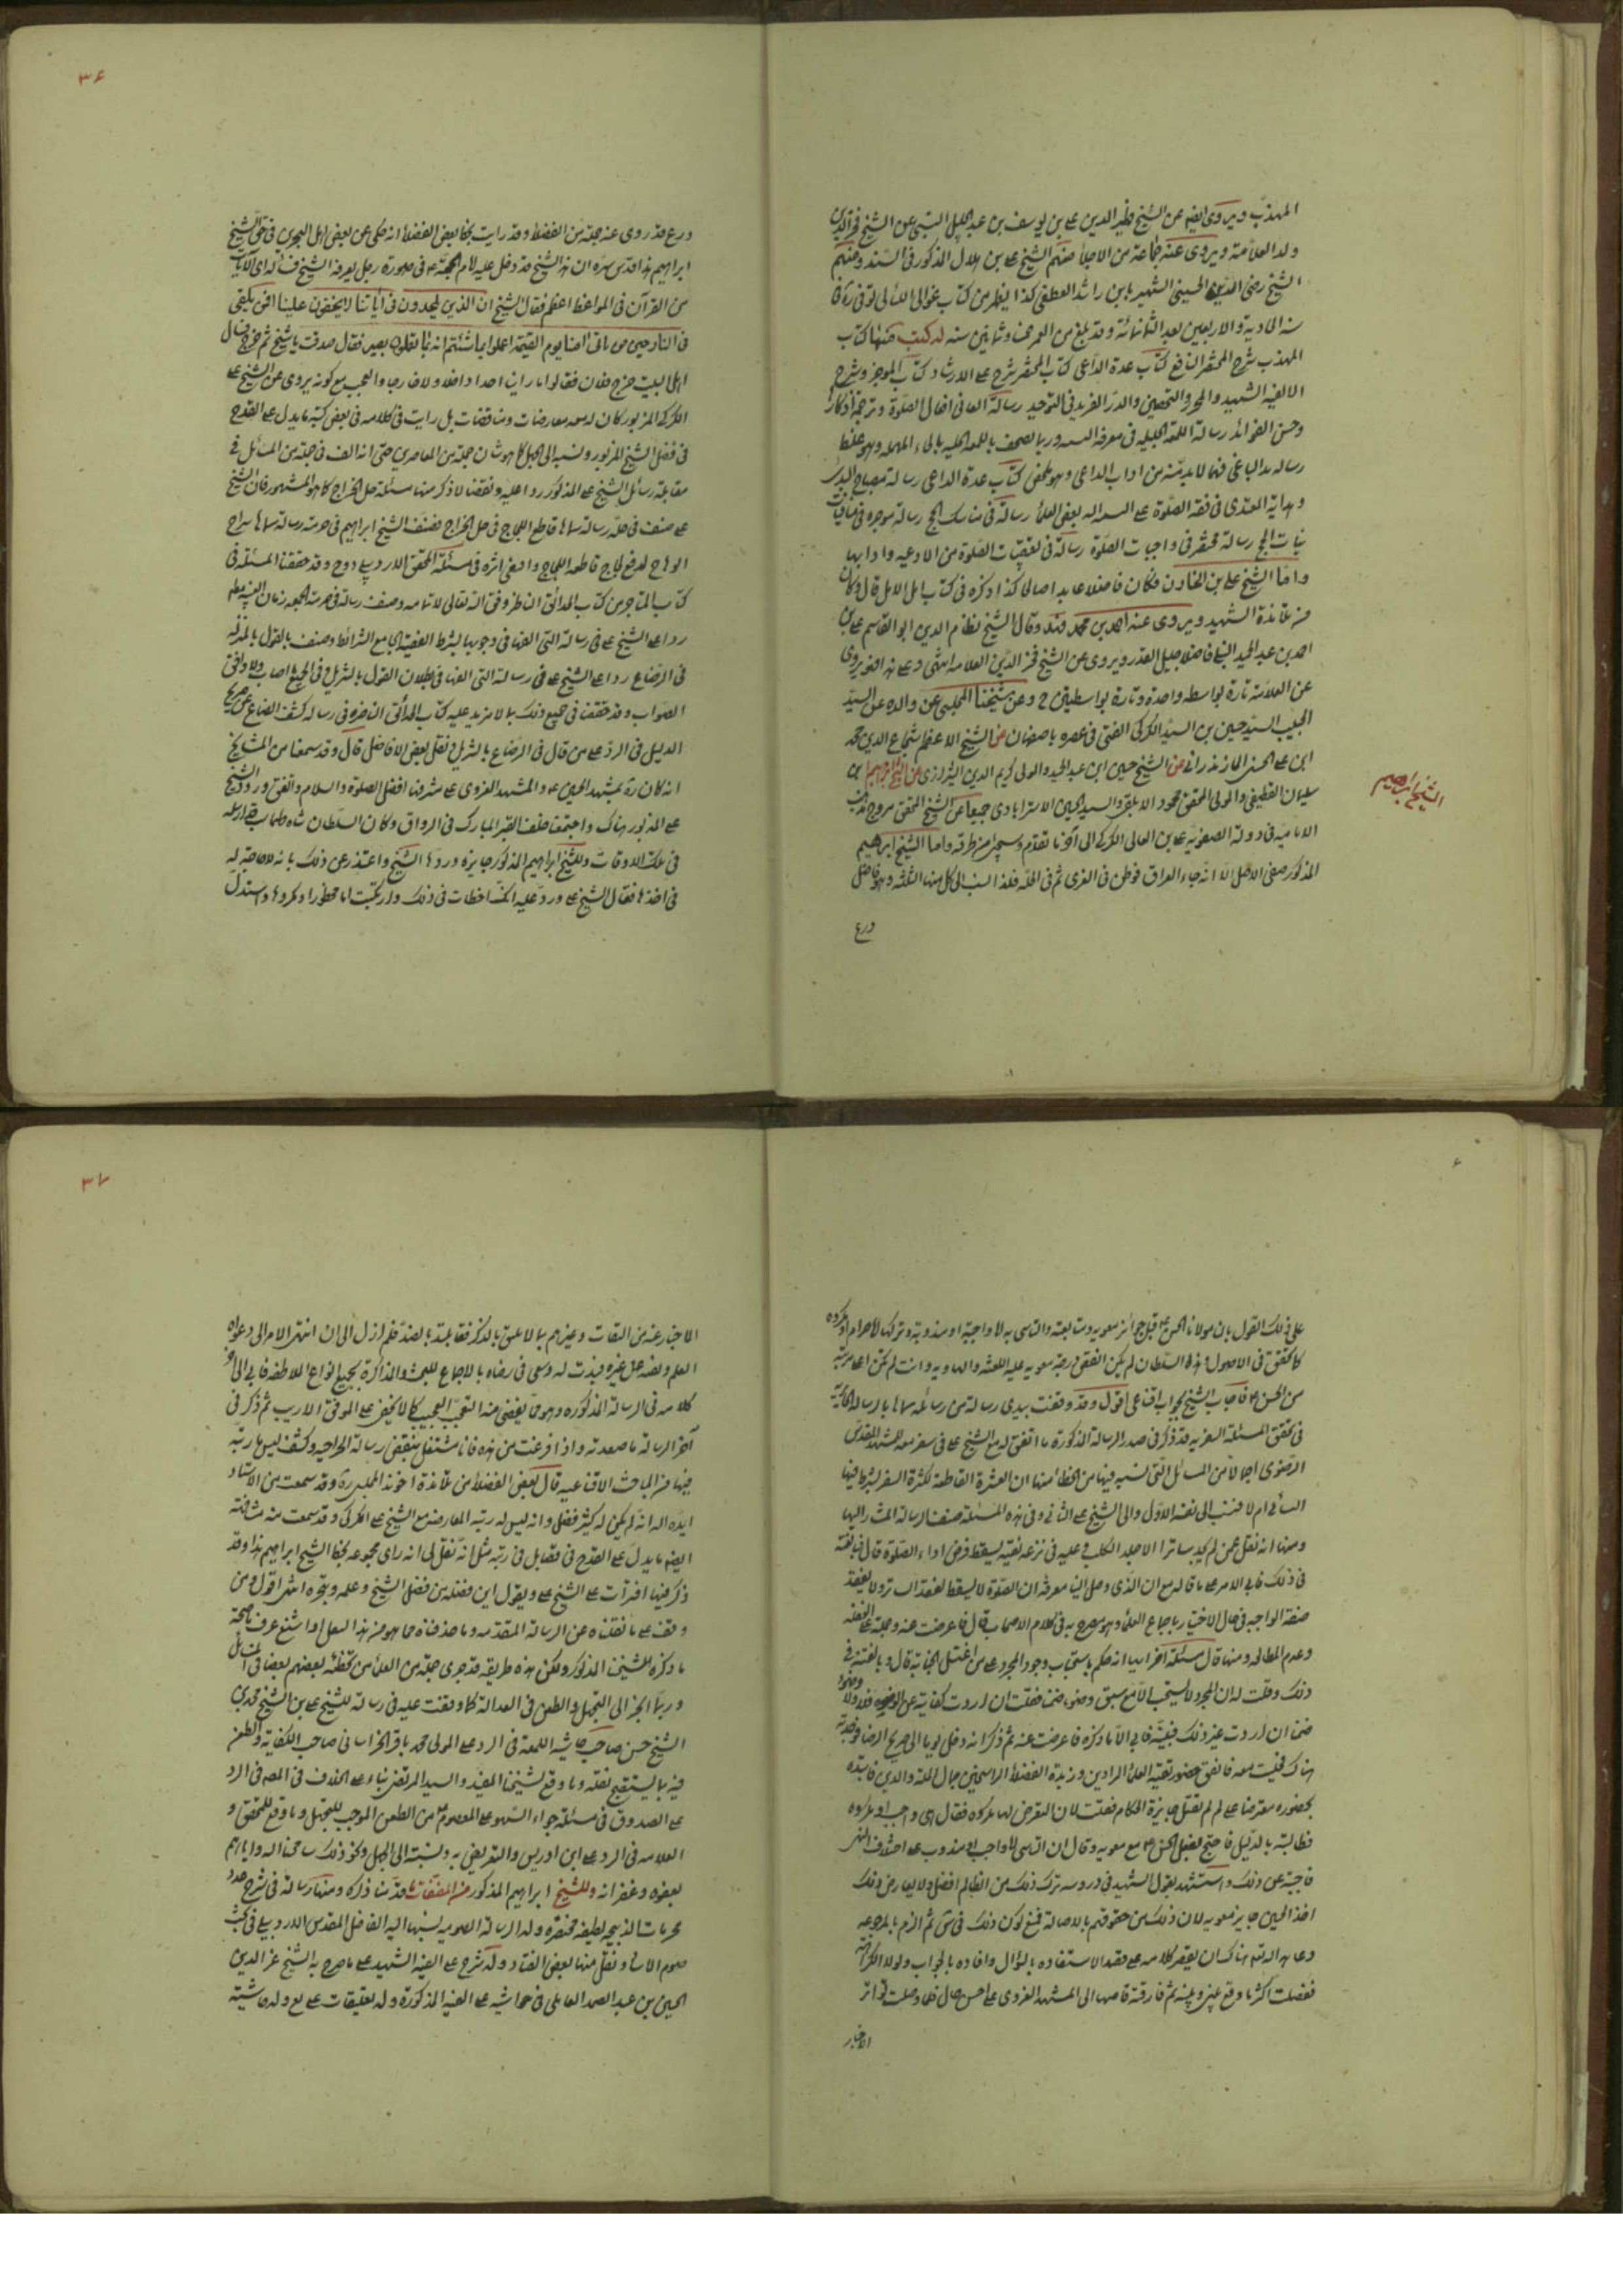 المهذب ويروى ايضا عن الشيخ ظهير الدين علي بن يوسف بن عبد الجليل النيلي عن الشيخ فخر الدين
ولد العلامة ويروى عنه جماعة من الاجلاء منهم الشيخ علي بن هلال المذكور في السند ومنهم
الشيخ رضى الدين الحسيني الشهير بابن راشد القطيفي كذا يظهر من كتاب غوالي اللئالي توفى ره في
سنة الحادية والاربعين بعد الثمانمائة وقد بلغ من العمر ثمانين سنه له كتب منها كتاب
المهذب شرح المختصر النافع كتاب عدة الداعي كتاب المقتصر شرح على الارشاد كتاب الموجز وشرح
الالفية الشهيد والمحرر والتحصين والدر الفريد في التوحيد رسالة المعاني افعال الصلوة وترجمة اذكارها
وحسن الفوائد رسالة اللمعة الجلية في معرفة النية وربما تصحف باللمعة الحليه بالحاء المهملة وهو غلط
رساله نبذ الباغي فيما لا بد منه من اداب الداعي وهو تلخيص كتاب عدة الداعي رسالة مصباح المبتدى
وهداية المقتدى في فقه الصلوة رسالة في مناسك الحج رسالة موجزه في
نيات الحج رسالة مختصر في واجبات الصلوة رسالة في تعقيبات الصلوة من الادعيه وادابها
واما الشيخ علي بن الخازن فكان فاضلا عابدا صالحا كذا ذكره في كتاب امل الامل قال وكان
من تلامذة الشهيد ويروى عنه احمد بن محمد فهد وقال الشيخ نظام الدين ابو القاسم علي بن
احمد بن عبد الحميد النيلي فاضل جليل القدر ويروى عن الشيخ فخر الدين العلامه انتهى وعلى هذا فهو يروى
عن العلامة تارة بواسطه واحدة وتارة بواسطتين ح وعن شيخنا المجلسي عن والده عن السيد
الحسيب السيد حسين بن السيد الكركي المفتي في عصره باصفهان عن الشيخ الاعظم شجاع الدين محمد
ابن علي الحسيني المازندراني عن الشيخ حسين ابن عبد الحميد والمولى كريم الدين الشيرازي عن الشيخ ابراهيم بن
سليمان القطيفي والمولى المحقق محمود الابلقي والسيد الحسين الاسترابادي جميعا عن الشيخ المحقق مروج مذهب
الاماميه في دولة الصفويه علي بن العالي الكركي الى آخر ما تقدم وسيجئ من طرقه واما الشيخ ابراهيم
المذكور فهو الاصل الا انه جاء العراق فوطن في الغري ثم في الحلة فلذا نسب الى كل منها الثلثة وهو فاضل
ورع
الشيخ ابراهيم
٣۶
ورع قد روى عنه جملة من الفضلاء وقد رايت بخط بعض الفضلاء انه حكى عن بعض اهل البحرين في حق الشيخ
ابراهيم هذا قدس سره ان هذا الشيخ قد دخل عليه الامام الحجة ع في صورة رجل يعرفه الشيخ فسأله اي الايات
من القرآن في المواعظ اعظم فقال الشيخ ان الذين يلحدون في آياتنا لا يخفون علينا افمن يلقى
في النار خير من ياتى امنا يوم القيمة اعملوا ما شئتم انه بما تعملون بصير فقال صدقت يا شيخ ثم خرج فسال
اهل البيت خرج فلان فقالوا ما راينا احدا داخلا ولا خارجا والعجب مع كونه يروى عن الشيخ علي
الكركي المزبور كان له معه معارضات ومناقضات بل رايت في كلامه في بعض كتبه ما يدل على القدح
في فضل الشيخ المزبور ونسبه الى الجهل كما هو شان جملة من المعاصرين حتى انه الف في جملة من المسائل في
مقابلة رسائل الشيخ علي المذكور ردا عليه ونقضا لا ذكر منها مسئلة حل الخراج كما هو المشهور فان الشيخ
علي صنف في حله رسالة سماها قاطع اللجاج في حل الخراج فصنف الشيخ ابراهيم في حرمته رسالة سماها سراج
الوهاج لدفع لجاج قاطعة اللجاج واقتفى اثره في مسئلة المحقق الاردبيلي وقد حققنا المسئلة في
كتاب المتاجر من كتاب الحدائق الناظر وفق الله تعالى لاتمامه وصنف رسالة في حرمة الجمعه زمان الغيبه
ردا على الشيخ علي في رسالة التي الفها في وجوبها بشرط الفقيه الجامع الشرائط وصنف بالقول بالمنزله
في الرضاع ردا على الشيخ علي في رسالة التي الفها في بطلان القول بالتنزيل وفي الجميع اصاب ولا وافق
الصواب وقد حققنا في جميع ذلك بما لا مزيد عليه كتاب الحدائق الناضره في رساله كشف القناع عن صريح
الدليل في الرد على من قال في الرضاع بالتنزيل نقل بعض الافاضل قال وقد سمعنا من المشايخ
انه كان ره بمشهد الحسين ع والمشهد الغروى على مشرفها افضل الصلوة والسلام واتفق ورود الشيخ
علي المذكور هناك واجتمعا خلف القبر المبارك في الرواق وكان السلطان شاه طهماسب قد ارسل
في تلك الاوقات للشيخ ابراهيم المذكور جايزه وردها الشيخ واعتذر عن ذلك بانه لا حاجة له
في اخذها فقال الشيخ علي ورد عليه انك اخطات في ذلك وارتكبت اما محظورا او مكروها واستدل
على ذلك القول بان مولانا الحسن ع قبل جوائز معويه ومتابعته والتاسي به لا واجبة او مندوبة وتركها لا حرام او مكروه
كما تحقق في الاصول وهذا السلطان لم يكن انقص درجة من معويه عليه اللعنة والهاويه وانت لم تكن اعلا مرتبة
من الحسن ع فاجاب الشيخ بجواب اقناعي اقول وقد وقفت بيدي رسالة من رسائله سماها بالرسالة الحائريه
في تحقق المسئلة السفريه قد ذكر في صدر الرسالة المذكورة ما اتفق له مع الشيخ علي في سفر معه للمشهد المقدس
الرضوى اجمالا من المسائل التي نسبه فيها من الخطأ منها ان العشرة القاطعة لكثرة السفر يشترط فيها
التتالي ام لا فنسب الى نفسه الاول والى الشيخ علي الثاني وفي هذه المسئلة صنف الرسالة المشار اليها
ومنها انه نقل عمن لم يجد ساترا الا جلد الكلب وعليه في نزعه تقيه يسقط فرض اداء الصلوة قال فبالغته
في ذلك فابى الامر على ما قاله مع ان الذي وصل الينا معرفة ان الصلوة لا يسقط لفقد الساتر ولا لفقد
صفة الواجبه في حال الاختيار باجماع العلماء وهو مصرح به في كلام الاصحاب قال فاعرضت عنه وحملته على الغفلة
وعدم المطالعه ومنها قال مسئلة اخرى ايضا انه حكم باستحباب وجود المجدد على من اغتسل الجنابة قال وبالغته في
ذلك وقلت له ان المجدد لا يستحب الا مع سبق وضوء ضمنا فقلت ان اردت كفايته عن الوضوء فلا ولا وضوء
ضمنا ان اردت غير ذلك فبينه فابى الا ما ذكره فاعرضت عنه ثم ذكر انه دخل يوما الى ضريح الرضا فوجدته
هناك فجلست معه فاتفق حضور بقية العلماء الرادين وزبدة الفضلاء الراسخين جمال الملة والدين فابتدء
بحضوره معترضا على لم لم تقبل جايزة الحكام فقلت لان التعرض لها مكروه فقال بل واجب او مكروه
فطالبته بالدليل فاحتج بفعل الحسن ع مع معويه وقال ان التاسي اما واجب او مندوب على اختلاف المذهبين
فاجبته عن ذلك واستشهدت بقول الشهيد في دروسه ترك ذلك من الظالم افضل ولا يعارض ذلك
اخذ الحسين جايزة معويه لان ذلك من حقوقهم بالاصالة فمنع لكون ذلك في شئ ثم الزم بالمرجوعه
وعاهد الله هناك ان يقصر كلامه على قصد الاستفاده بالسؤال وافاده بالجواب ولولا الكراهه
لفصلت اكثر ما وقع بيني وبينه ثم فارقته قاصدا الى المشهد الغروى على احسن حال فلما وصلت تواتر
الاخبار
٣٧
الاخبار عنه من الثقات وغيرهم بما لا يليق بالذكر فقابلته بالصد فلم ازل الى ان انتهى الامر الى دعواه
العلم ونفيه عن غيره فبذلت له وسعى في رضاه بالاجماع للبحث والمذاكرة بجميع انواع الملاطفه فابى الى اخر
كلامه في الرسالة المذكوره وهو مما يفضى منه التعجب العجيب كما لا يخفى على الموفق الاريب ثم ذكر في
آخر الرسالة ما صعدته واذا فرغت من هذه فانا مشتغل بنقض رسالة الخراجيه وكشف لبس ما رتبه
فيها من المباحث الاقناعيه قال بعض الفضلاء من تلامذة اخوند المجلسي ره وقد سمعت من الاستاد
ايده الله انه لم يكن له كثير فضل وانه ليس له رتبة المعارضة مع الشيخ علي الكركي وقد سمعت منه مشافهة
ايضا ما يدل على القدح في فضله بل في رتبه مثل انه نقل لي انه راى مجموعه بخط الشيخ ابراهيم هذا وقد
ذكر فيها افترات على الشيخ علي ويقول اين فضله من فضل الشيخ وعلمه وتبحره انتهى اقول ومن
وقف على ما نقلناه عن الرسالة المتقدمه وما حذفناه مما هو من هذا القبيل او اشنع عرف صحة
ما ذكره شيخنا المذكور ولكن هذه طريقه قد جرى جملة من العلماء من تخطئه بعضهم بعضا في المسائل
وربما انجز الى التجهيل والطعن في العدالة كما وقفت عليه في رسالة للشيخ علي بن الشيخ محمد بن
الشيخ حسن صاحب حاشية اللمعة في الرد على المولى محمد باقر الخراساني صاحب الكفاية والطعن
فيه بما يستقبح نقله وما وقع لشيخنا المفيد والسيد المرتضى بناء على الخلاف في المصه في الرد
على الصدوق في مسئلة جواز السهو على المعصوم ع من الطعن الموجب للتجهيل وما وقع للمحقق و
العلامه في الرد على ابن ادريس والتعريض به ونسبته الى الجهل ونحو ذلك سامحنا الله واياهم
بعفوه وغفرانه وللشيخ ابراهيم المذكور من المصنفات ما قدمنا ذكره ومنها رسالة في شرح عدد
محرمات الذبيحه لطيفه مختصره وله الرسالة الصوميه نسبها اليه الفاضل المقدس الاردبيلي في كتاب
صوم الارشاد ونقل منها بعض الفتاوى وله شرح على الفيه الشهيد على ما صرح به الشيخ عز الدين
الحسين بن عبد الصمد العاملي في حواشيه على الفيه المذكورة وله تعليقات على يع وله حاشية